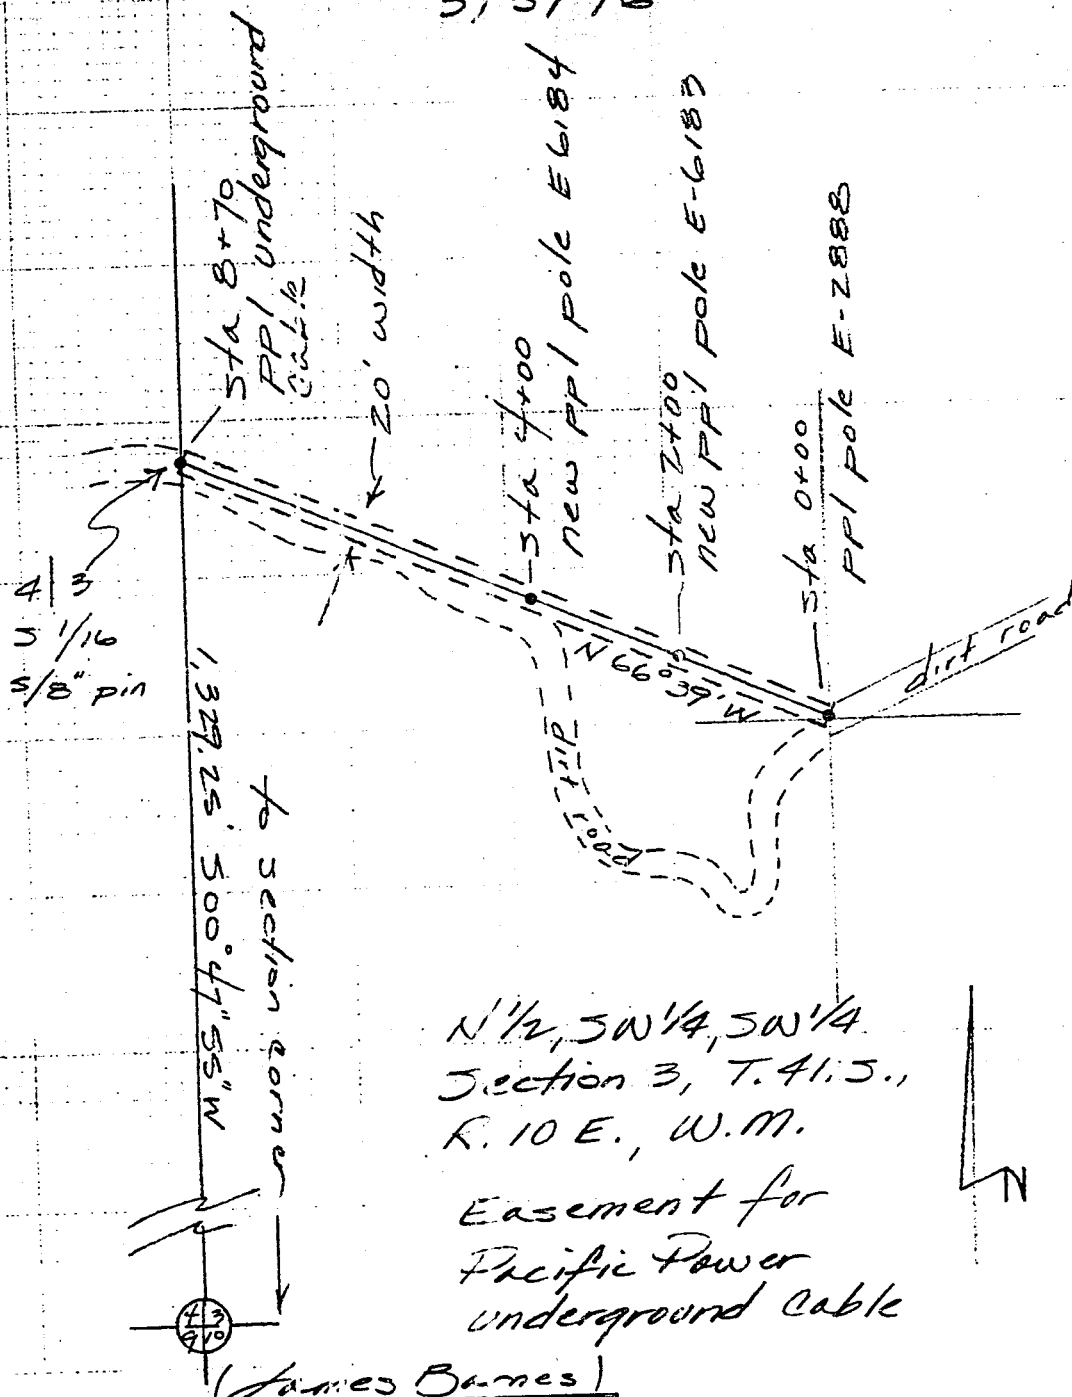 Sta 8+70
PPl underground
cable
20' width
Sta 4+00
new PPl pole E6184
Sta 2+00
new PPl pole E-6183
Sta 0+00
PPl pole E-2888
4 | 3
S 1/16
5/8" pin
N 66° 39' W
dirt road
dirt
road
1,329.25' S00° 47' 55" W
to section corner
N 1/2, SW 1/4, SW 1/4
Section 3, T. 41. S.,
R. 10 E., W.M.
N
Easement for
Pacific Power
underground Cable
4 3
9 10
(James Barnes)